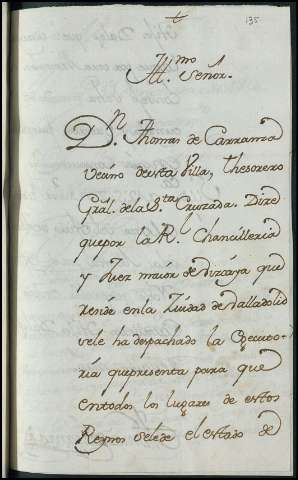 135
Ill.mo Señor.
D.n Thomas de Carranza
Vecino de esta Villa, Thesorero
Gral. de la S.ta Cruzada. Dize
que por la R.l Chancilleria
y Juez maior de Vizcaya que
reside en la Ziudad de Valladolid
se le ha despachado la Executo-
ria que presenta para que
en todos los lugares de estos
Reynos se le de el estado de